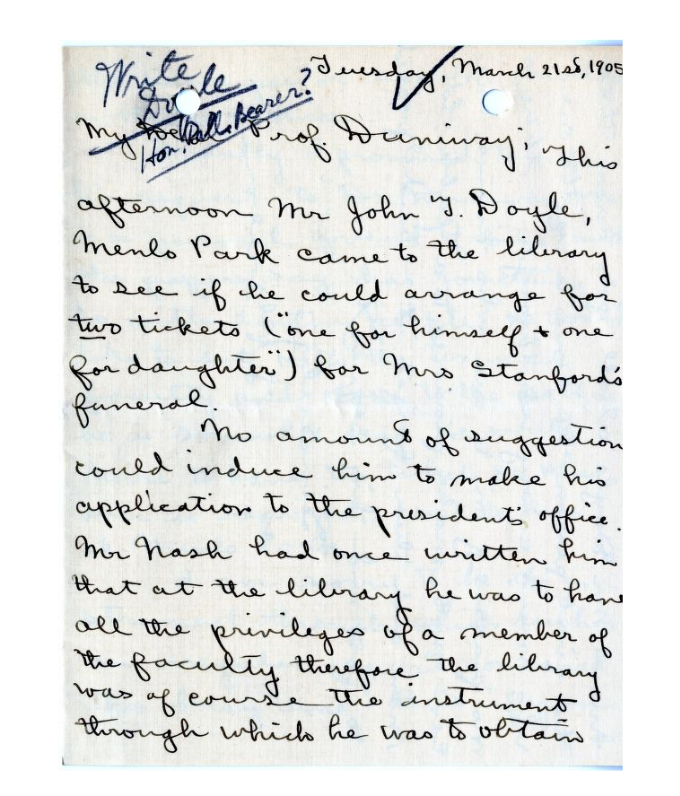 Write
Doyle
Hon. Pall Bearer?
Tuesday, March 21st, 1905
My Prof. Duniway; This
afternoon Mr John T. Doyle,
Menlo Park came to the library
to see if he could arrange for
two tickets ("one for himself & one
for daughter") for Mrs Stanford's
funeral.
No amount of suggestion
could induce him to make his
application to the president's office.
Mr Nash had once written him
that at the library he was to have
all the privileges of a member of
the faculty therefore the library
was of course the instrument
through which he was to obtain